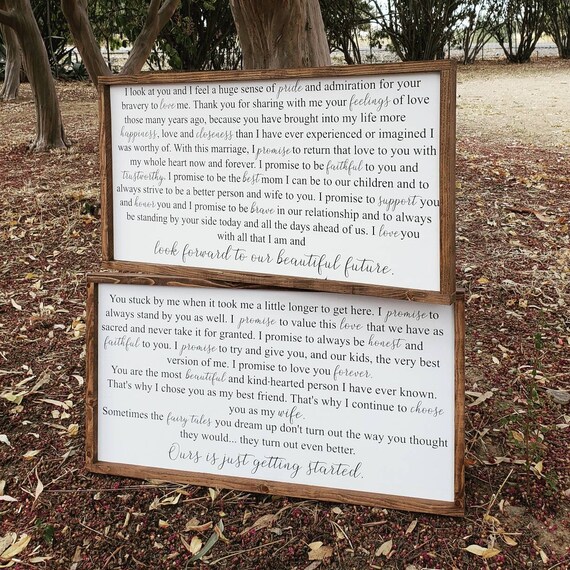 I look at you and I feel a huge sense of pride and admiration for your
bravery to love me. Thank you for sharing with me your feelings of love
those many years ago, because you have brought into my life more
happiness, love and closeness than I have ever experienced or imagined I
was worthy of. With this marriage, I promise to return that love to you with
my whole heart now and forever. I promise to be faithful to you and
trustworthy. I promise to be the best mom I can be to our children and to
always strive to be a better person and wife to you. I promise to support you
and honor you and I promise to be brave in our relationship and to always
be standing by your side today and all the days ahead of us. I love you
with all that I am and
look forward to our beautiful future.
You stuck by me when it took me a little longer to get here. I promise to
always stand by you as well. I promise to value this love that we have as
sacred and never take it for granted. I promise to always be honest and
faithful to you. I promise to try and give you, and our kids, the very best
version of me. I promise to love you forever.
You are the most beautiful and kind-hearted person I have ever known.
That's why I chose you as my best friend. That's why I continue to choose
you as my wife.
Sometimes the fairy tales you dream up don't turn out the way you thought
they would... they turn out even better.
Ours is just getting started.